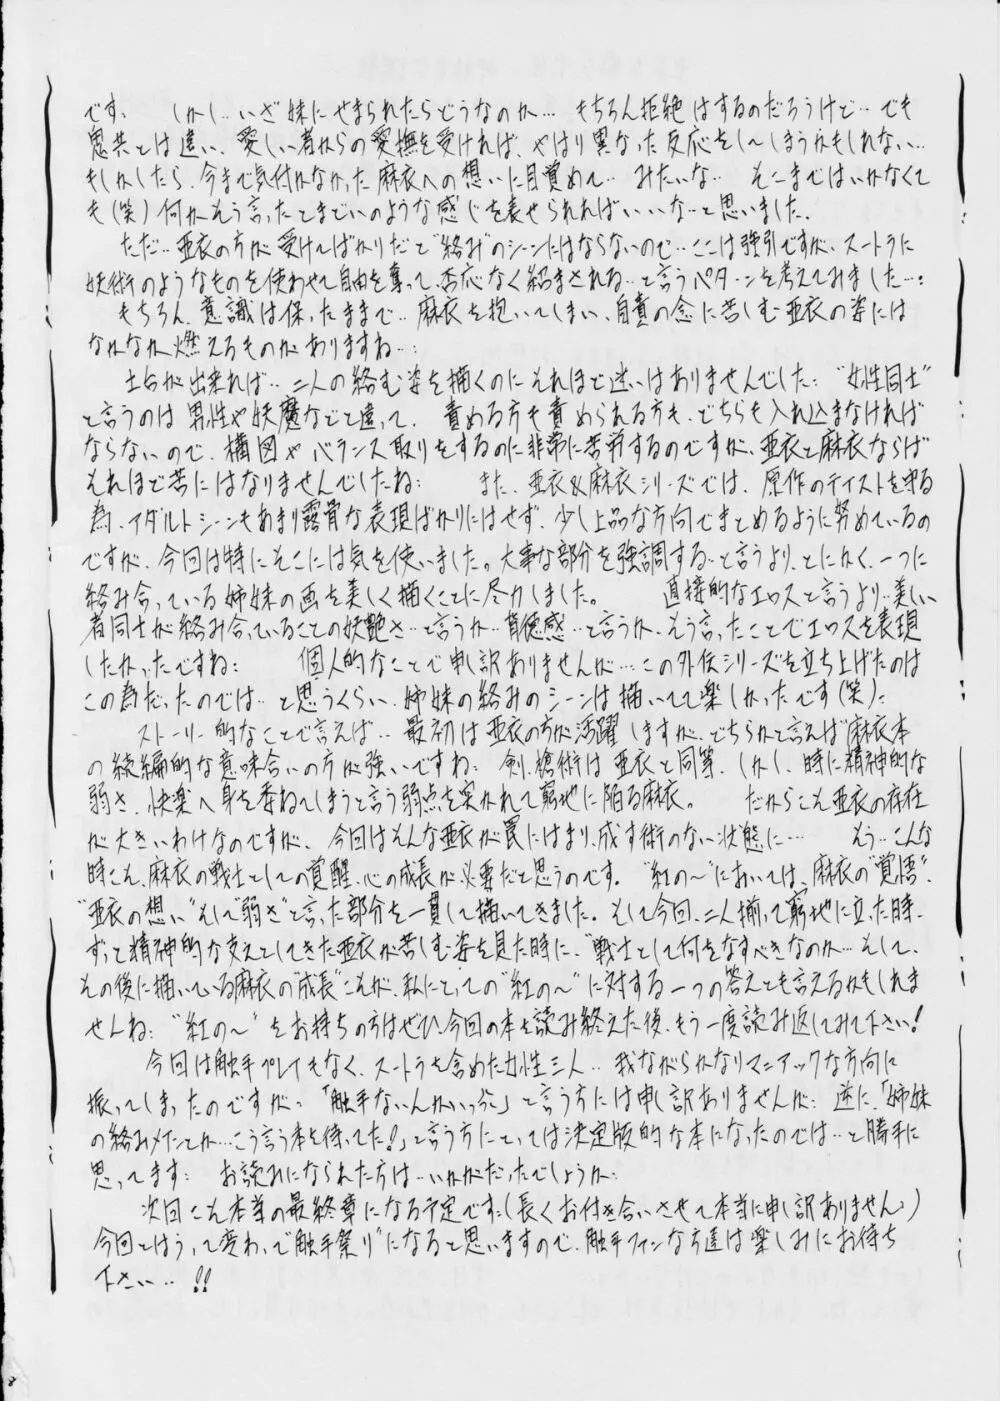 です、　しかし‥いざ妹にせまられたらどうなのか… もちろん拒絶はするのだろうけど‥でも
鬼共とは違い、愛しい者からの愛撫を受ければ、やはり異なった反応をしてしまうかもしれない…
もしかしたら、今まで気付かなかった麻衣への想いに目覚めて‥ みたいな‥ そこまではいかなくて
も(笑)何かそう言ったとまどいのような感じを表せられればいいな‥と思いました、
ただ‥亜衣の方が受けてばかりだと“絡み”のシーンにはならないので‥ここは強引ですが、スートラに
妖術のようなものを使わせて自由を奪って、否応なく絡まされる‥と言うパターンを考えてみました…:
もちろん、意識は保ったままで‥麻衣を抱いてしまい、自責の念に苦しむ亜衣の姿には
なかなか燃えるものがありますね…:
土台が出来れば‥二人の絡む姿を描くのにそれほど迷いはありませんでした: “女性同士”
と言うのは男性や妖魔などと違って、責める方も責められる方も、どちらも入れ込まなければ
ならないので、構図やバランス取りをするのに非常に苦労するのですが、亜衣と麻衣ならば
それほど苦にはなりませんでしたね:　また、亜衣&麻衣シリーズでは、原作のテイストを守る
為、アダルトシーンもあまり露骨な表現ばかりにはせず、少し上品な方向でまとめるように努めているの
ですが、今回は特にそこには気を使いました。大事な部分を強調する‥と言うより、とにかく、一つに
絡み合っている姉妹の画を美しく描くことに尽力しました。　直接的なエロスと言うより‥美しい
者同士が絡み合っていることの妖艶さ‥と言うか‥背徳感‥と言うか、そう言ったことでエロスを表現
したかったですね:　個人的なことで申し訳ありませんが…この外伝シリーズを立ち上げたのは
この為だったのでは‥と思うくらい、姉妹の絡みのシーンは描いてて楽しかったです(笑):
ストーリー的なことで言えば‥ 最初は亜衣の方が活躍しますが、どちらかと言えば“麻衣本”
の続編的な意味合いの方が強いですね: 剣、槍術は亜衣と同等、しかし、時に精神的な
弱さ、快楽へ身を委ねてしまうと言う弱点を突かれて窮地に陥る麻衣。　だからこそ亜衣の存在
が大きいわけなのですが、今回はそんな亜衣が罠にはまり、成す術のない状態に…　もう‥こんな
時こそ、麻衣の戦士としての覚醒、心の成長が必要だと思うのです。“紅の～”においては、麻衣の“覚悟”、
“亜衣の想い”そして“弱さ”と言った部分を一貫して描いてきました。そして今回、二人揃って窮地に立った時、
ずっと精神的な支えとしてきた亜衣が苦しむ姿を見た時に、“戦士として何をなすべきなのか…そして、
その後に描いている麻衣の“成長”こそが、私にとっての“紅の～”に対する一つの答えとも言えるかもしれま
せんね: “紅の～”をお持ちの方はぜひ、今回の本を読み終えた後、もう一度読み返してみて下さい!
今回は触手プレイもなく、スートラを含めた女性三人‥我ながらかなりマニアックな方向に
振ってしまったのですが:「触手ないんかいっ」と言う方には申し訳ありませんが: 逆に、「姉妹
の絡みメインとか…こう言う本を待ってた!」と言う方にとっては決定版的な本になったのでは‥と勝手に
思ってます: お読みになられた方は‥いかがだったでしょうか:
次回こそ本当の最終章になる予定です:(長くお付き合いさせて本当に申し訳ありません:)
今回とはうって変わって“触手祭り”になると思いますので、触手ファンな方達は楽しみにお待ち
下さい‥!!